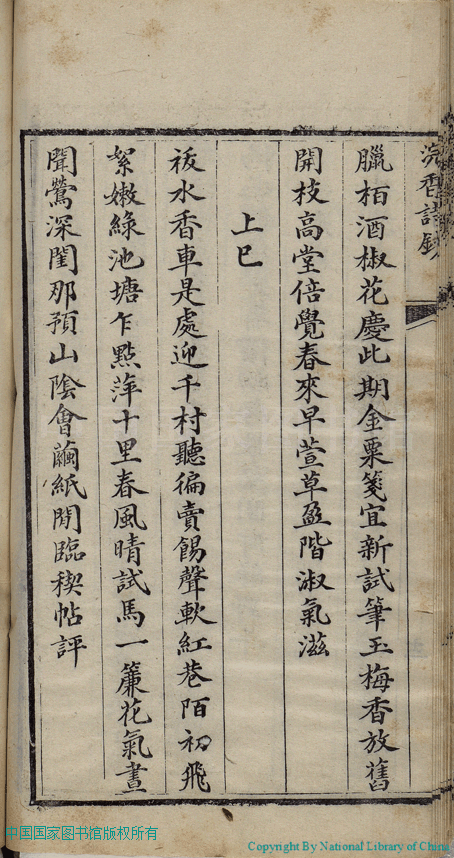 浣香詩鈔
臘栢酒椒花慶此期金粟箋宜新試筆玉梅香放舊
開枝高堂倍覺春來早萱草盈階淑氣滋
上巳
祓水香車是處迎千村聽徧賣餳聲軟紅巷陌初飛
絮嫩綠池塘乍㸃萍十里春風晴試馬一簾花氣晝
聞鶯深閨那預山陰會繭紙閒臨稧帖評
中国国家图书馆版权所有
Copyright By National Library of China